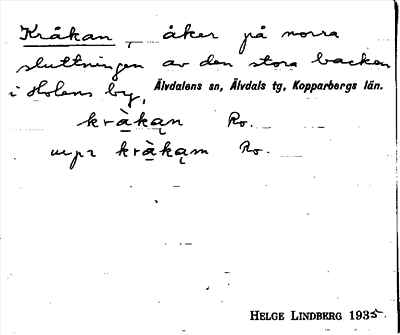 Kråkan, åker på norra
sluttningen av den stora backen
i Holens by, Älvdalens sn, Älvdals tg, Kopparbergs län.
kråkąn Ro.
upr kråkąm Ro.
HELGE LINDBERG 1935.